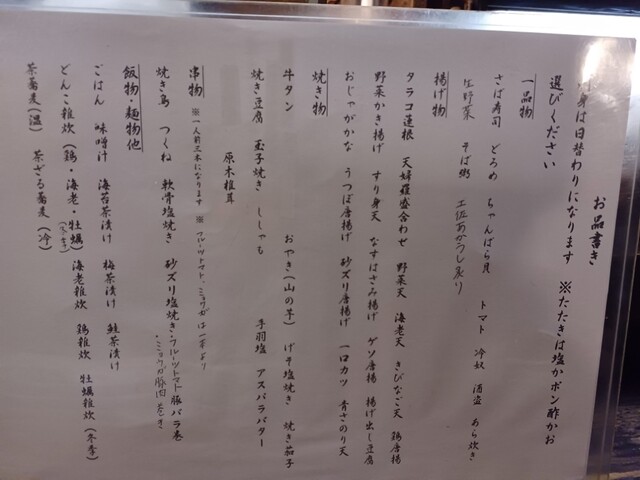 お品書き
身は日替わりになります ※たたきは塩かポン酢かお
選びください
一品物
さば寿司 どろめ ちゃんばら貝 トマト 冷奴 酒盗 あら炊き
生野菜 そば粥 土佐あかうし炙り
揚げ物
タラコ蓮根 天婦羅盛合わせ 野菜天 海老天 きびなご天 鶏唐揚
野菜かき揚げ すり身天 なすはさみ揚げ ゲソ唐揚 揚げ出し豆腐
おじゃがかな うつぼ唐揚げ 砂ズリ唐揚げ 一口カツ 青さのり天
焼き物
牛タン おやき(山の芋) げそ塩焼き 焼き茄子
焼き豆腐 玉子焼き ししゃも 手羽塩 アスパラバター
原木椎茸
串物 ※一人前三本になります ※フルーツトマト、ミョウガは一本より
焼き鳥 つくね 軟骨塩焼き 砂ズリ塩焼き・フルーツトマト豚バラ巻
・ミョウガ豚肉巻き
飯物・麺物他
ごはん 味噌汁 海苔茶漬け 梅茶漬け 鮭茶漬け
どんこ雑炊(鶏・海老・牡蠣) 海老雑炊 鶏雑炊 牡蠣雑炊(冬季)
(冬季)
茶蕎麦(温) 茶ざる蕎麦(冷)